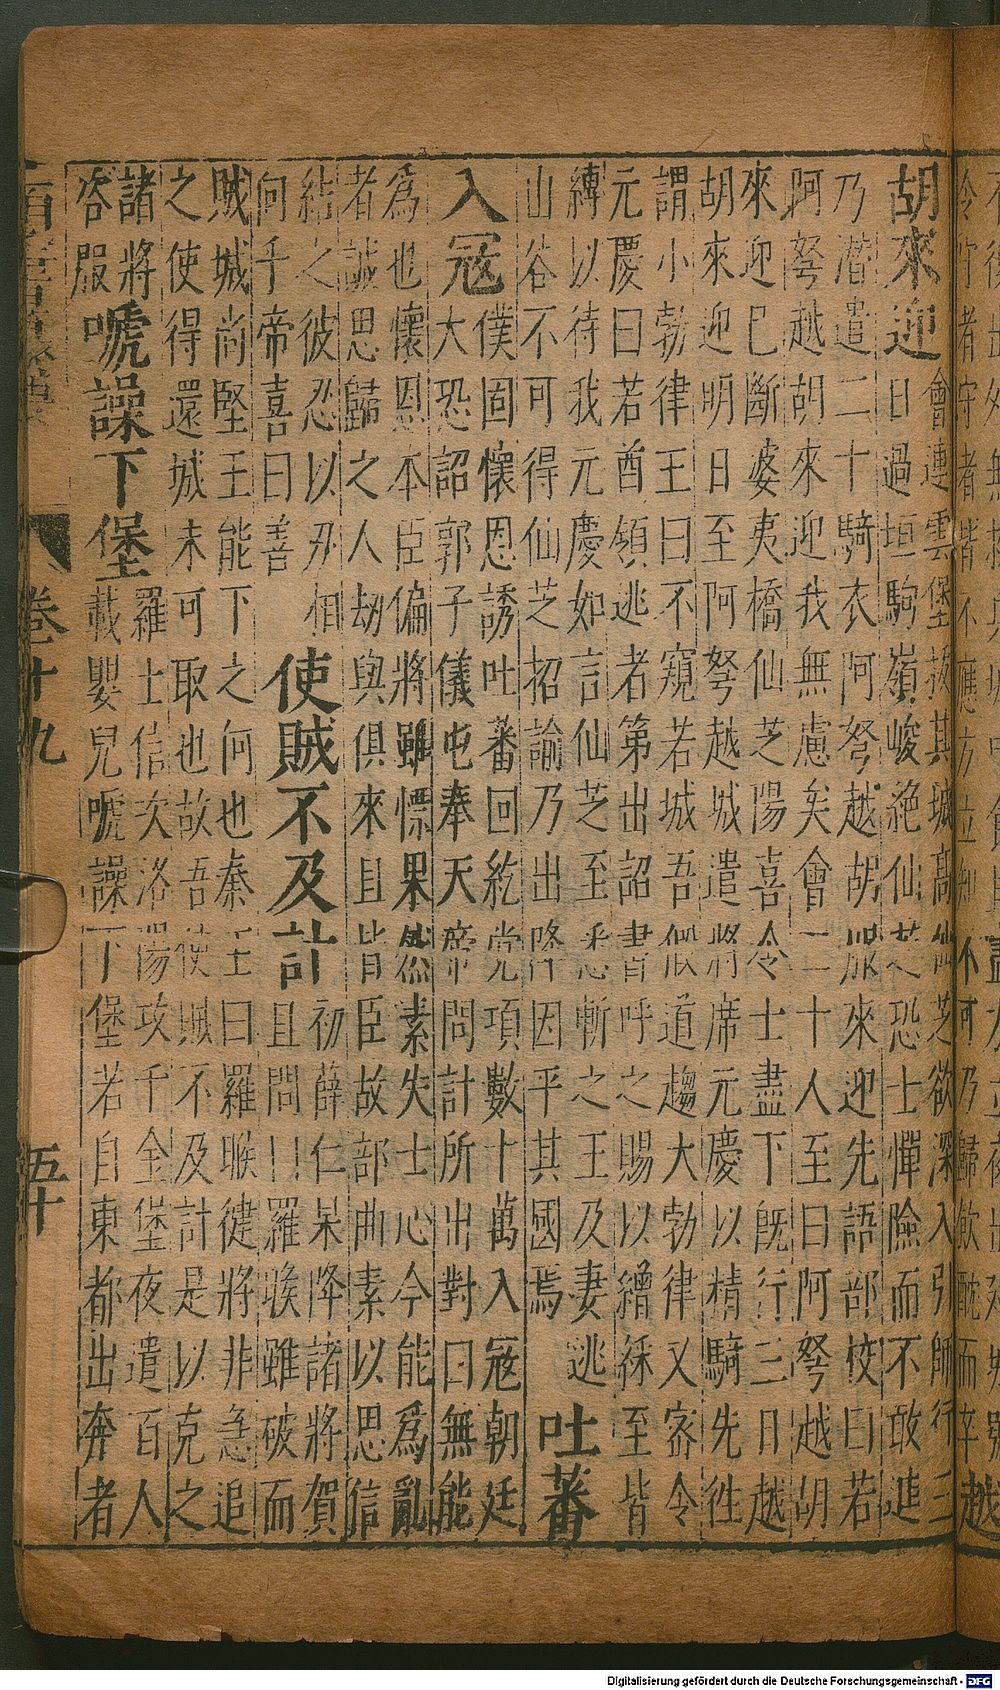 胡來迎
會連雲堡拔其城高仙芝欲深入引師行三
日過垣駒嶺峻絶仙芝恐士憚險而不敢進
乃潛遣二十騎衣阿弩越胡服來迎先語部校曰若
阿弩越胡來迎我無慮矣會二十人至曰阿弩越胡
來迎已斷婆夷橋仙芝陽喜令士盡下既行三日越
胡來迎明日至阿弩越城遣將席元慶以精騎先徃
謂小勃律王曰不窺若城吾假道趨大勃律又密令
元慶曰若酋領逃者第出詔書呼之賜以繒綵至皆
縛以待我元慶如言仙芝至悉斬之王及妻逃
山谷不可得仙芝招諭乃出降因平其國焉
吐蕃
入寇
僕固懷恩誘吐蕃回紇党項數十萬入寇朝廷
大恐詔郭子儀屯奉天帝問計所出對曰無能
為也懷恩本臣偏將雖慓果然素失士心今能為亂
者誠思歸之人劫與俱來且皆臣故部曲素以思信
結之彼忍以刃相
向千帝喜曰善
使賊不及計
初薛仁杲降諸將賀
且問曰羅睺雖破而
賊城尚堅王能下之何也秦王曰羅睺健將非急追
之使得還城未可取也故吾使賊不及計是以克之
諸將
咨服
嘑譟下堡
羅士信次洛陽攻千金堡夜遣百人
載嬰兒嘑譟下堡若自東都出奔者
卷十九
五十
Digitalisierung gefördert durch die Deutsche Forschungsgemeinschaft - DFG